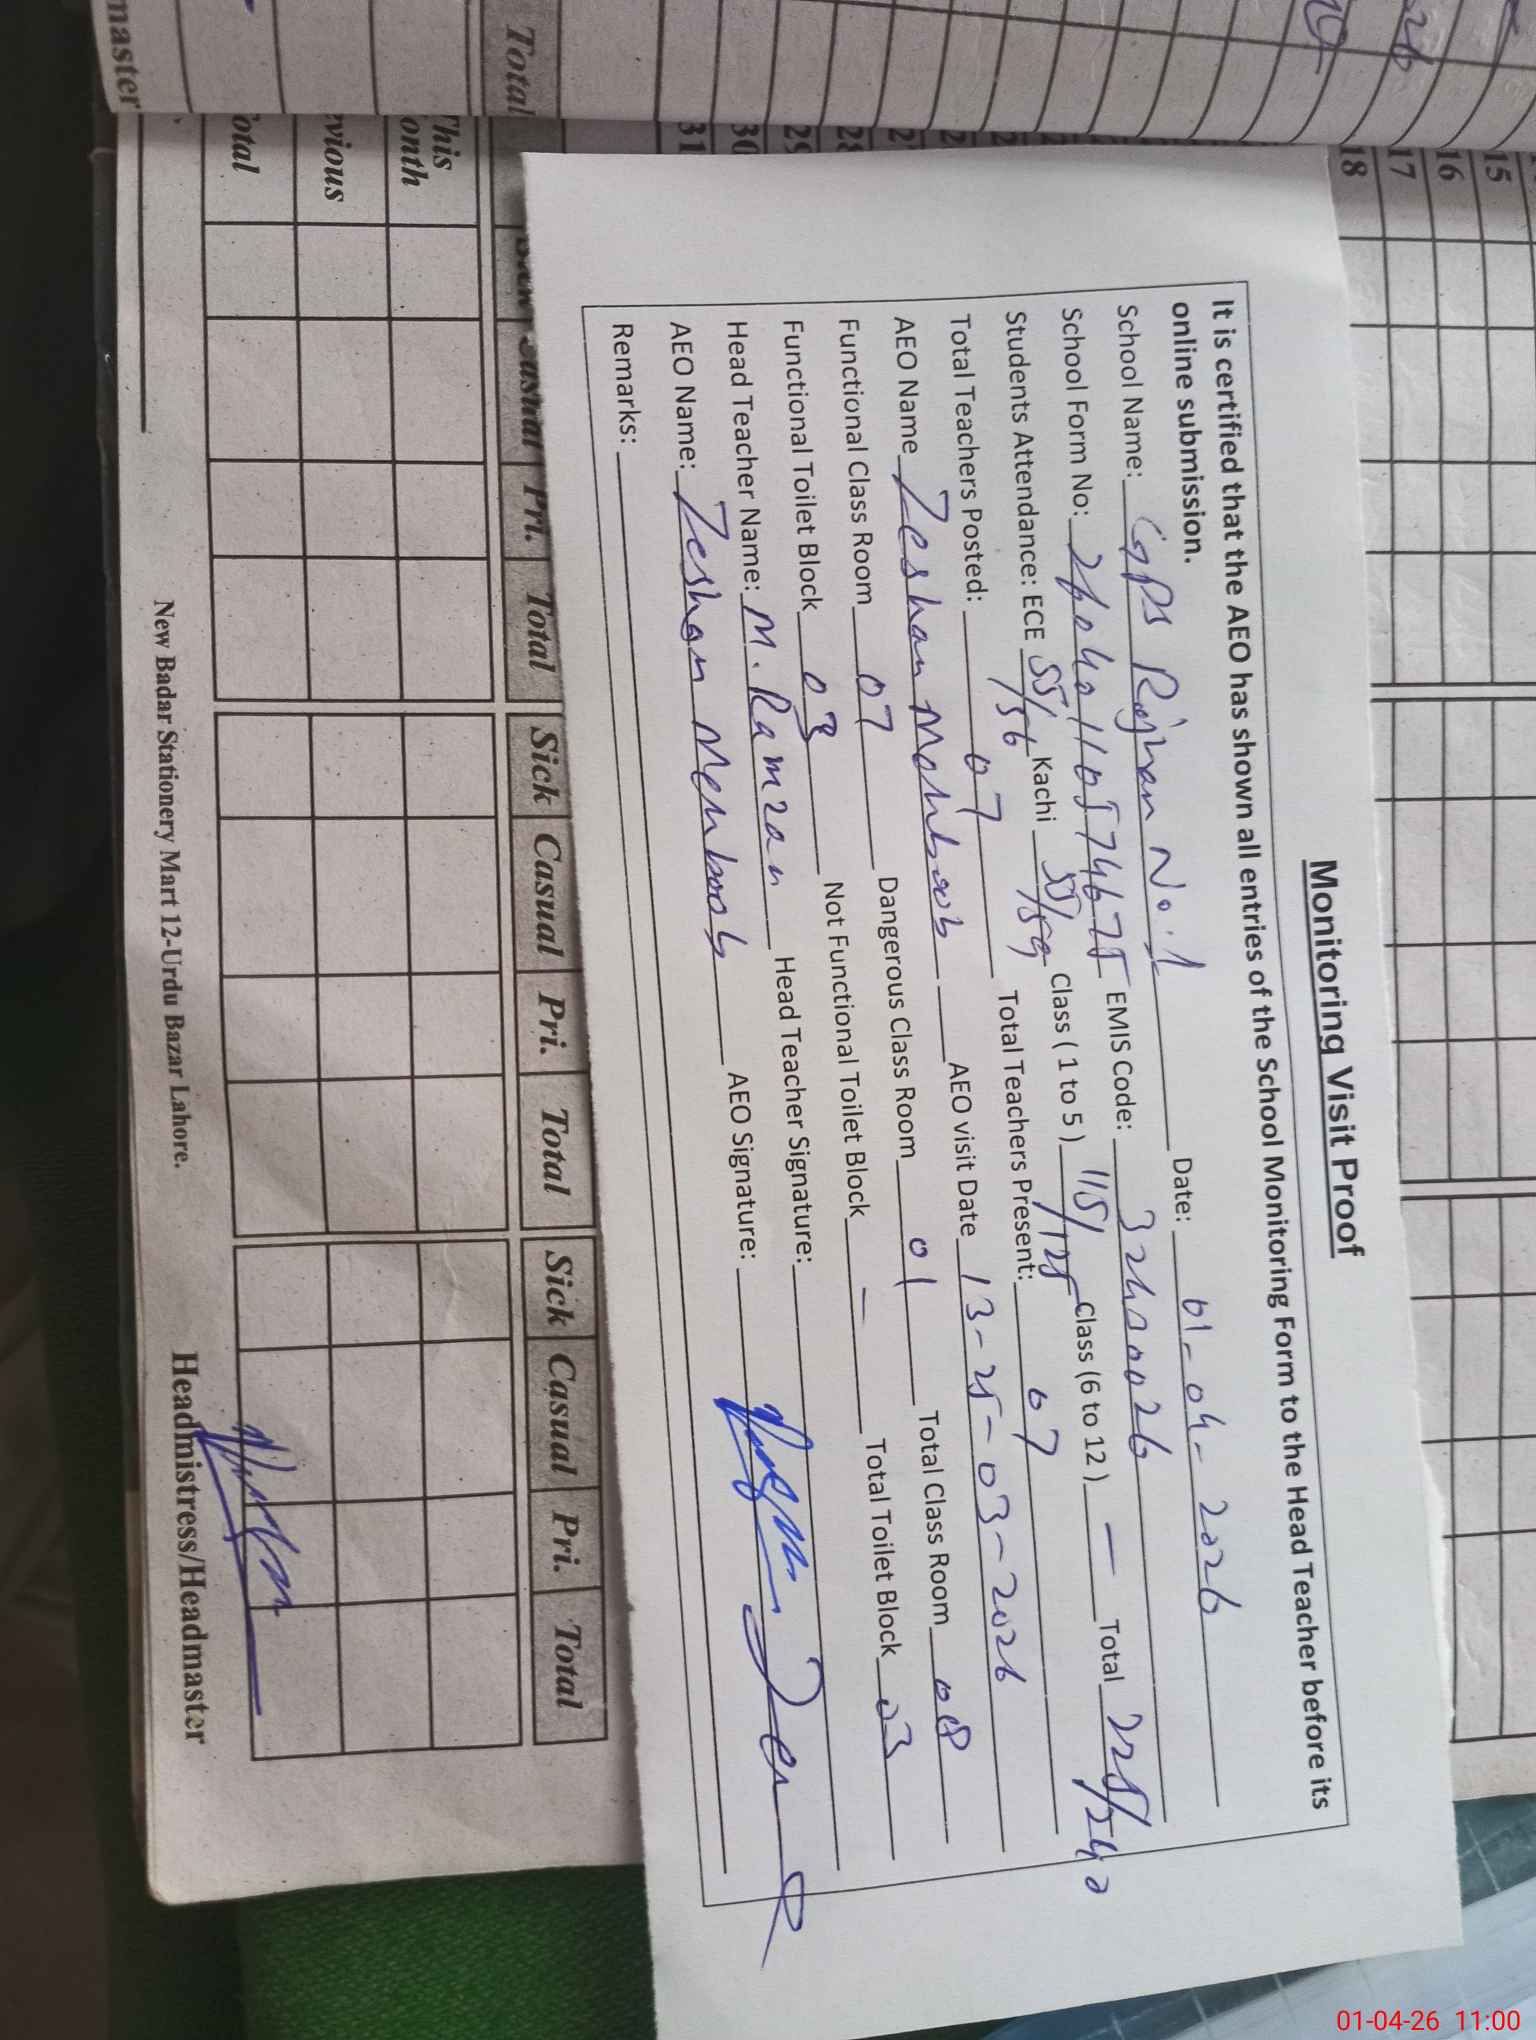 Monitoring Visit Proof
It is certified that the AEO has shown all entries of the School Monitoring Form to the Head Teacher before its
online submission.
School Name: GPS Rojhan No.1 Date: 01-04-2026
School Form No: EMIS Code:
Students Attendance: ECE 55/56 Kachi 55/59 Class ( 1 to 5 ) 115/125 Class (6 to 12 ) — Total 225/240
Total Teachers Posted: 07 Total Teachers Present: 07
AEO Name Zeshan Mehboob AEO visit Date 13-25-03-2026
Functional Class Room 07 Dangerous Class Room 01 Total Class Room 08
Functional Toilet Block 03 Not Functional Toilet Block — Total Toilet Block 03
Head Teacher Name: M. Ramzan Head Teacher Signature:
AEO Name: Zeshan Mehboob AEO Signature:
Remarks:
15
16
17
18
28
29
30
31
Total
Casual Pri. Total Sick Casual Pri. Total Sick Casual Pri. Total
This
onth
vious
otal
master
New Badar Stationery Mart 12-Urdu Bazar Lahore.
Headmistress/Headmaster
01-04-26 11:00